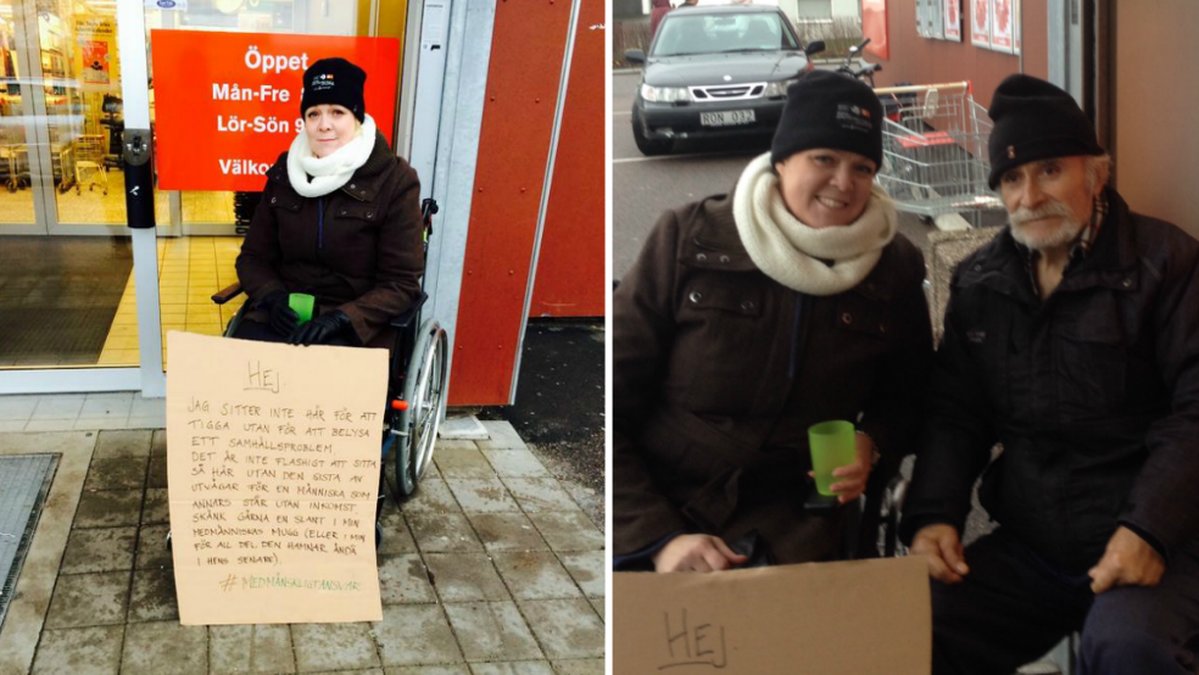 Öppet
Mån-Fre
Lör-Sön 9
Välko
HEJ.
JAG SITTER INTE HÄR FÖR ATT
TIGGA UTAN FÖR ATT BELYSA
ETT SAMHÄLLSPROBLEM
DET ÄR INTE FLASHIGT ATT SITTA
SÅ HÄR UTAN DEN SISTA AV
UTVÄGAR FÖR EN MÄNNISKA SOM
ANNARS STÅR UTAN INKOMST.
SKÄNK GÄRNA EN SLANT I MIN
MEDMÄNNISKAS MUGG (ELLER I MIN
FÖR ALL DEL. DEN HAMNAR ÄNDÅ
I HENS SENARE).
#MEDMÄNSKLIGTANSVAR
RON 032
HEJ